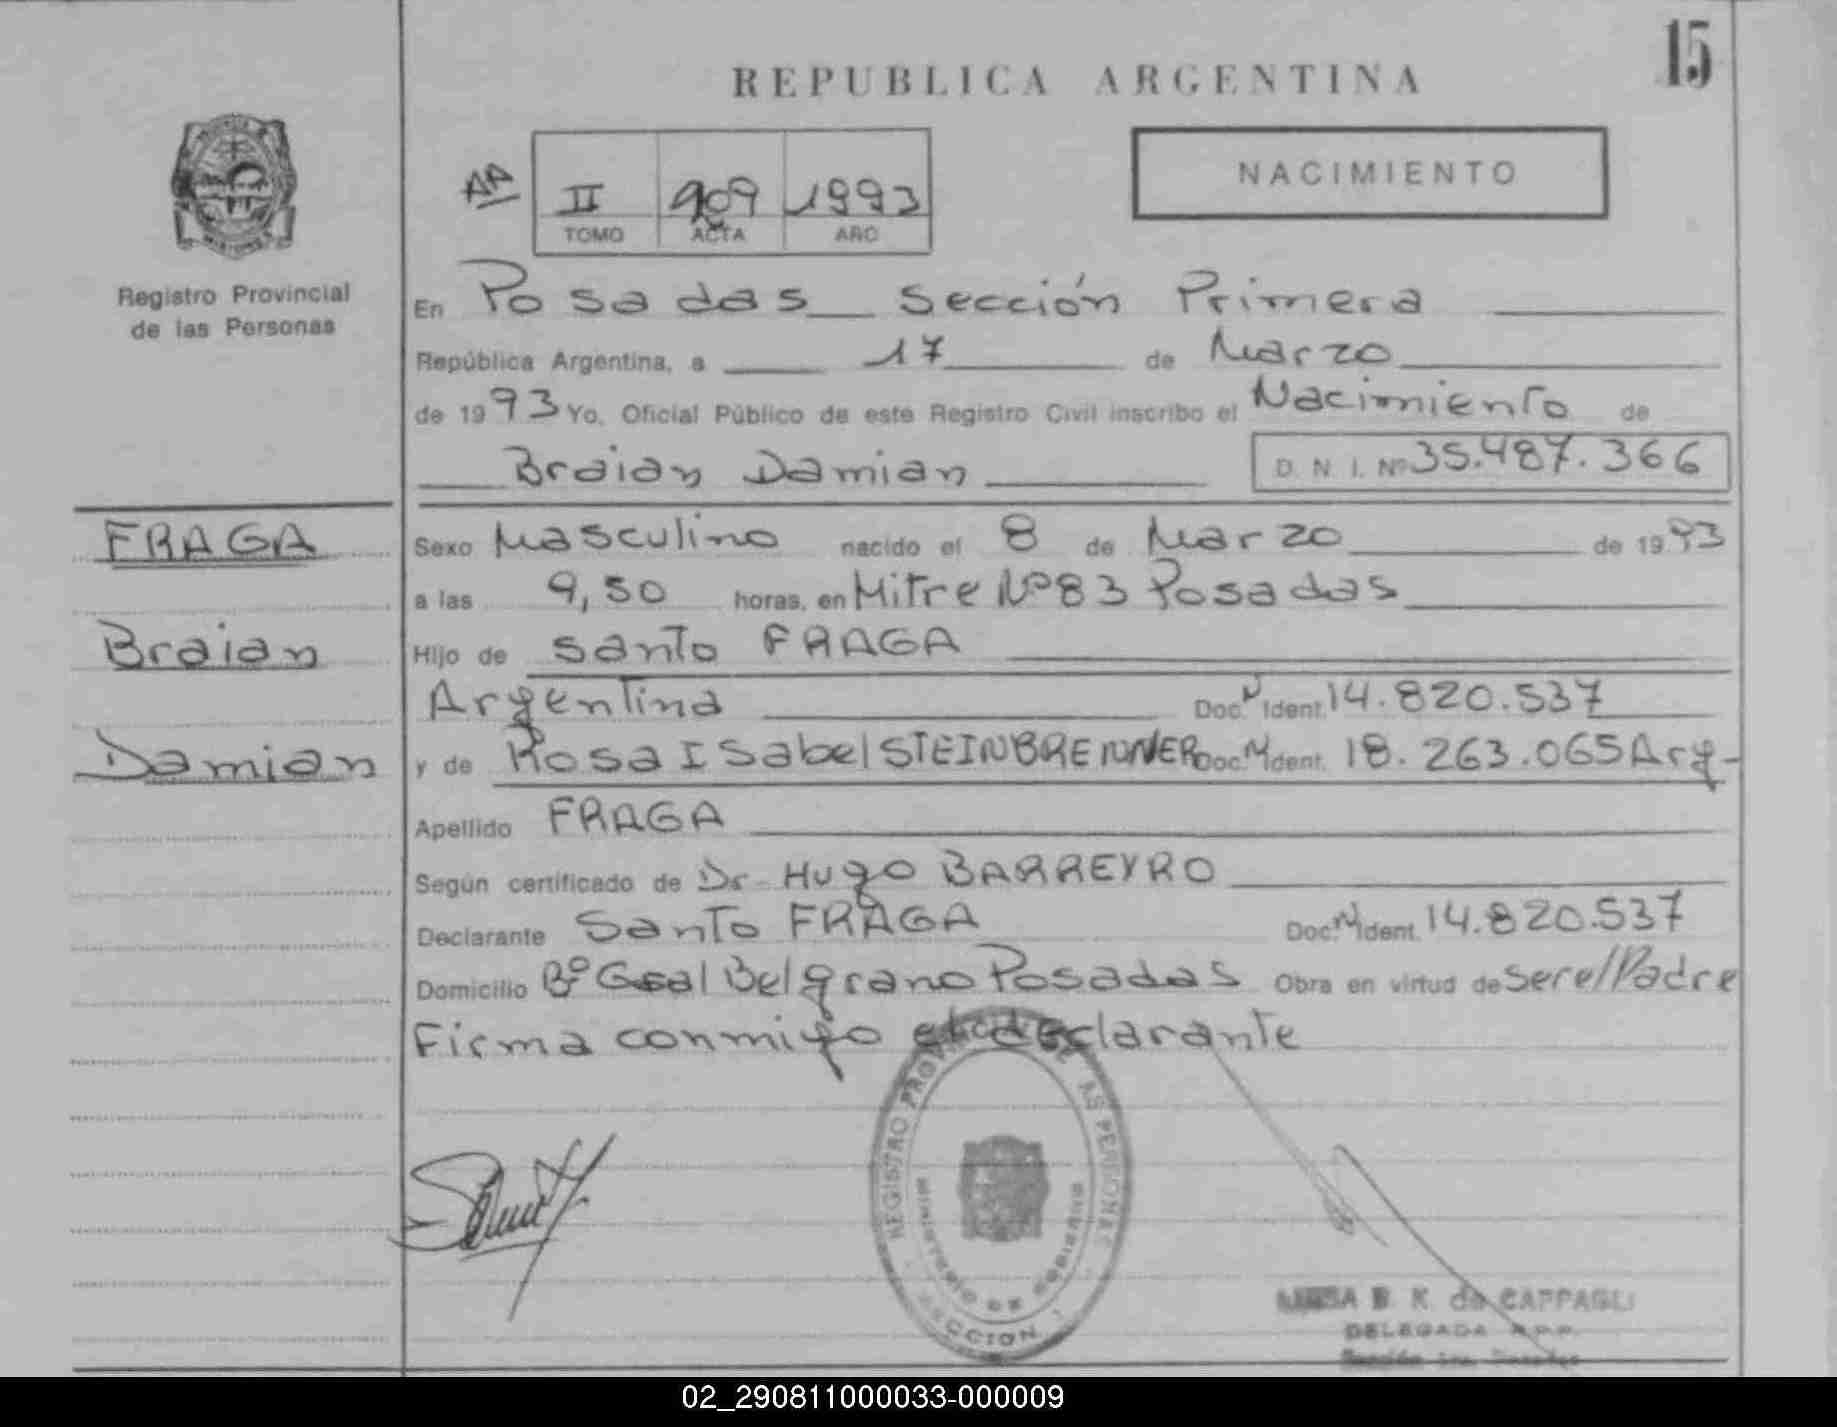 15
REPUBLICA ARGENTINA
NACIMIENTO
II 909 1993
TOMO ACTA AÑO
Registro Provincial
de las Personas
En Posadas Sección Primera
República Argentina, a 17 de Marzo
de 1993 Yo, Oficial Público de este Registro Civil inscribo el Nacimiento de
Braian Damian D. N. I. Nº 35.487.366
FRAGA
Braian
Damian
Sexo Masculino nacido el 8 de Marzo de 1993
a las 9,50 horas, en Mitre Nº 83 Posadas
Hijo de Santo FRAGA
Argentina Doc. N Ident. 14.820.537
y de Rosa Isabel STEINBRENNER Doc. N Ident. 18.263.065 Arg-
Apellido FRAGA
Según certificado de Dr Hugo BARREYRO
Declarante Santo FRAGA Doc. N Ident. 14.820.537
Domicilio Bº Gral Belgrano Posadas Obra en virtud de Ser el Padre
Firma conmigo el declarante
REGISTRO PROVINCIAL DE LAS PERSONAS
MINISTERIO DE GOBIERNO
SECCION 1
B. K. de CAPPAGLI
DELEGADA R.P.P.
02_290811000033-000009